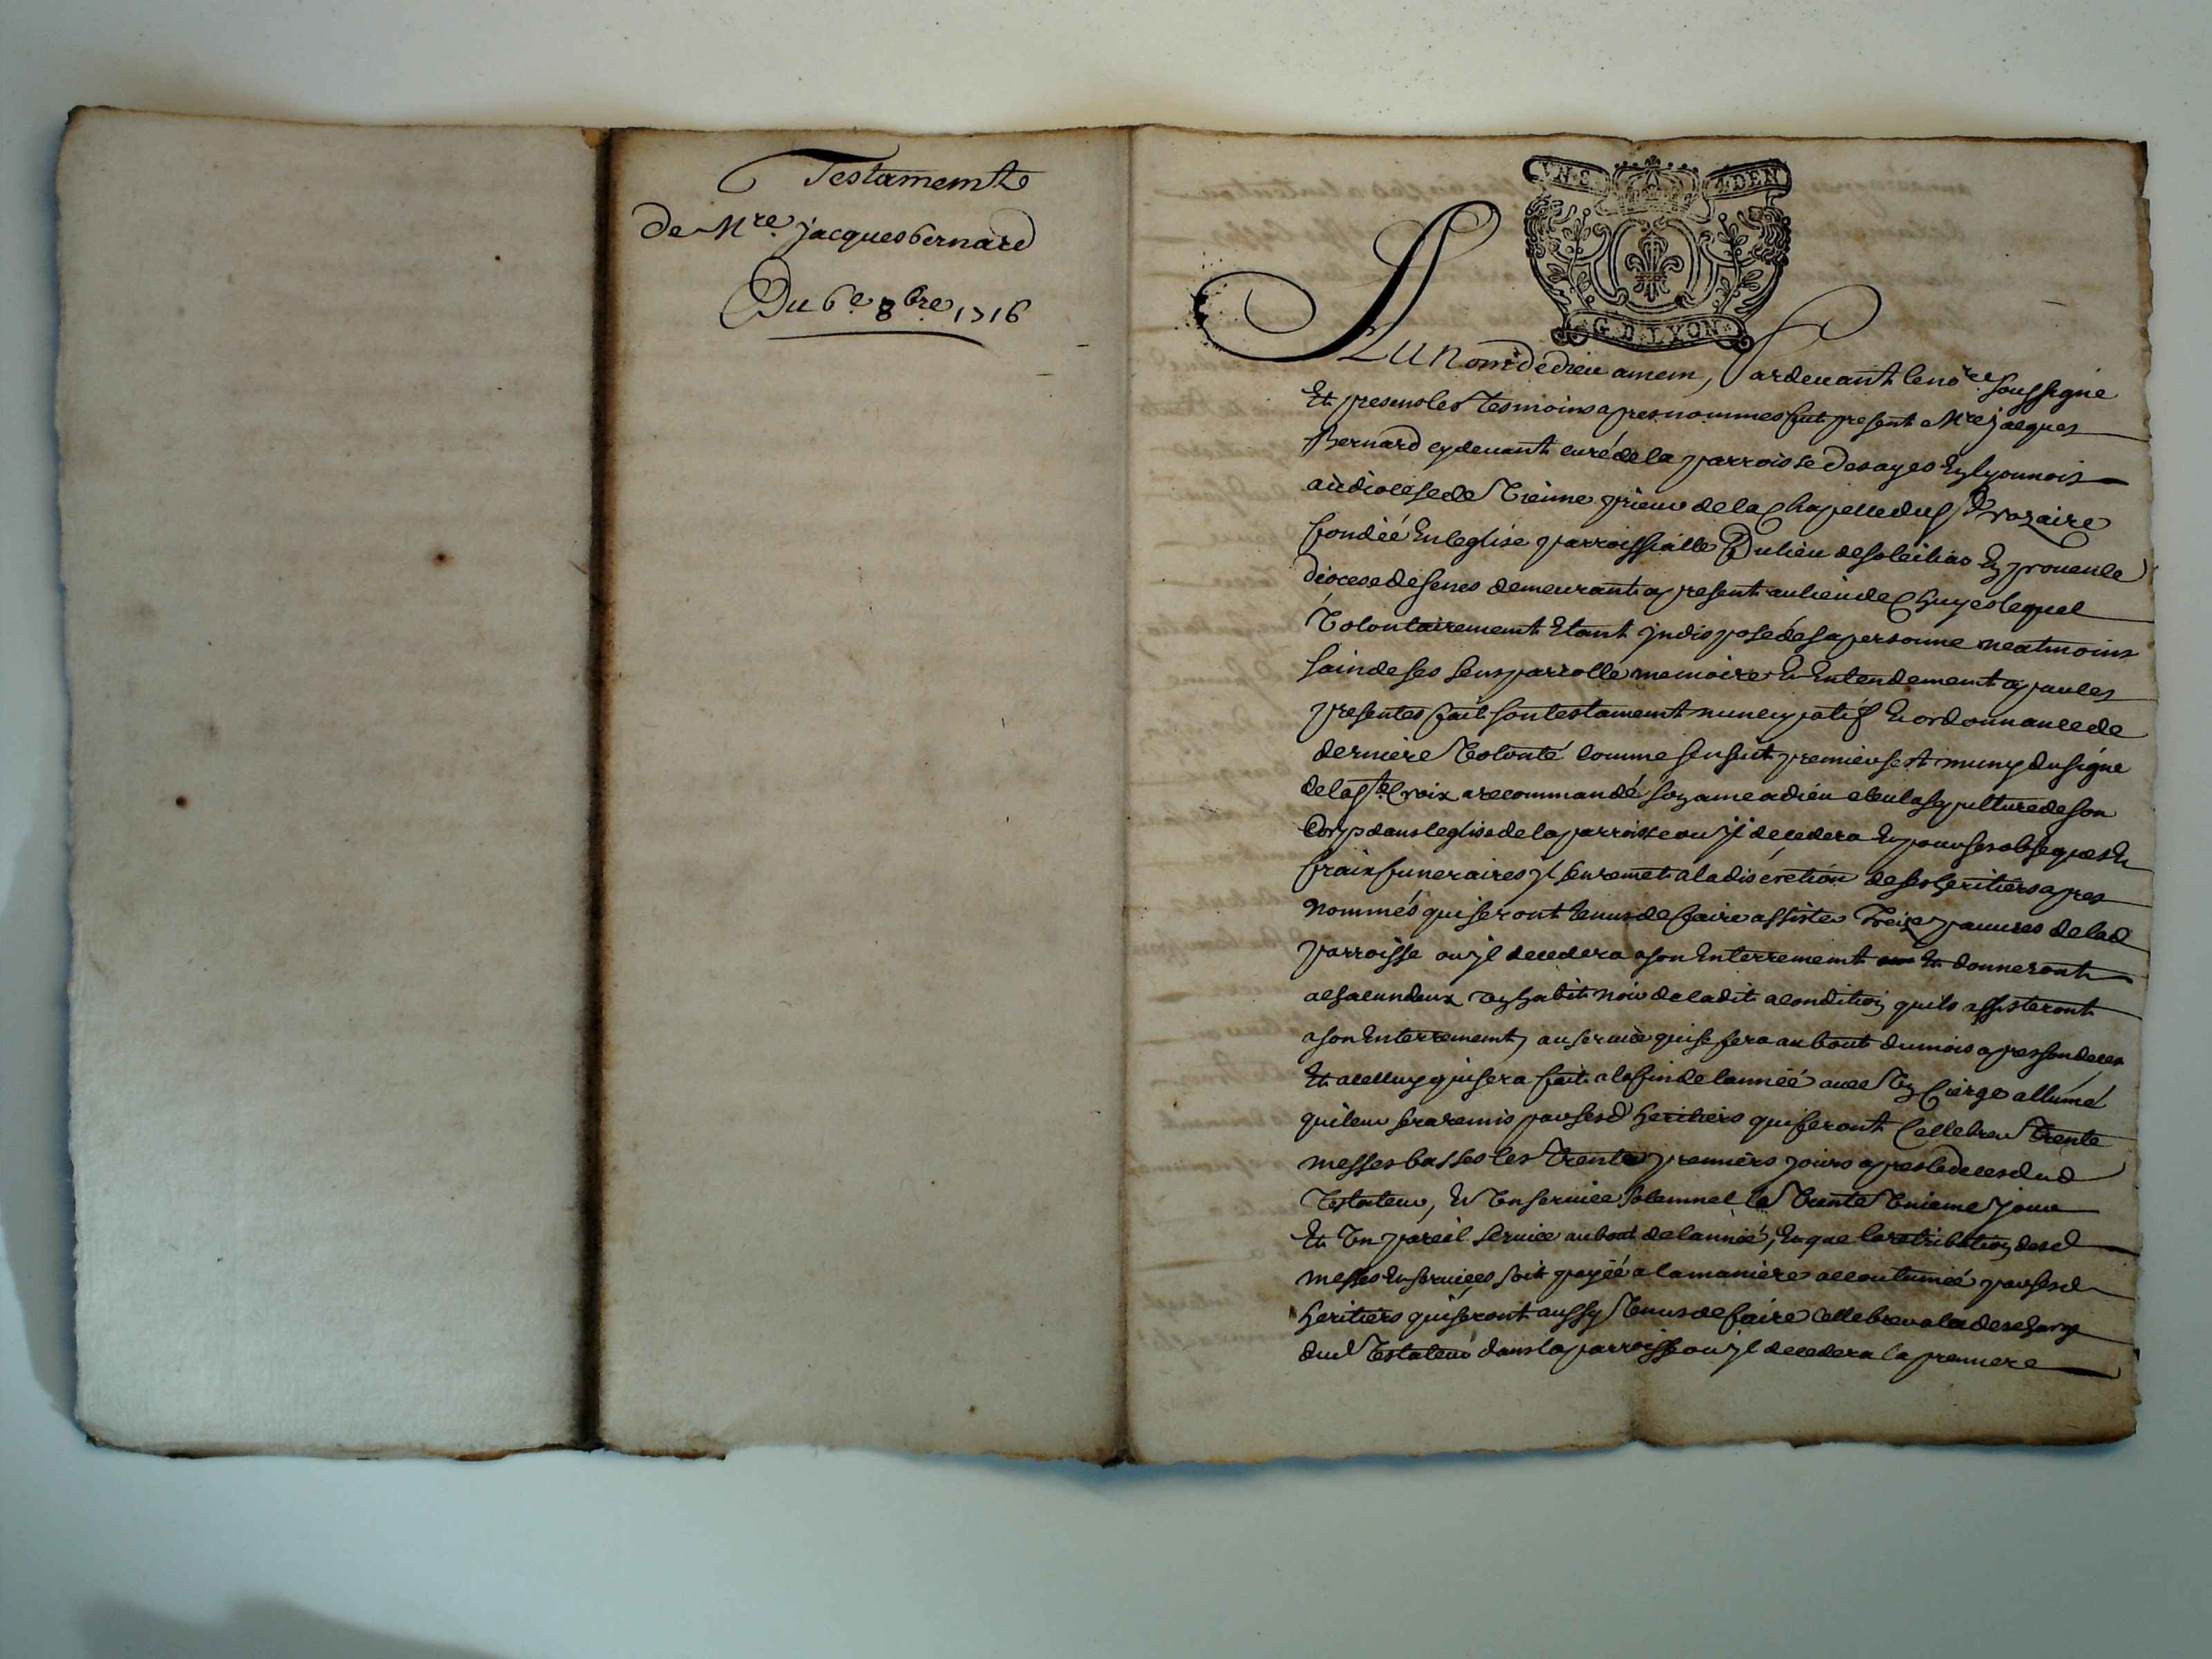 Testament
de Mre jacques bernard
Du 6e 8bre 1716
VN.S 4.DEN
G.D.LYON
Au nom de dieu amem, Pardeuant le nore soussigné
Et presens les tesmoins apres nommes fut present Mre jacques
Bernard cy deuant curé de la parroisse desayes En lyonnois
au diocese de Vienne prieur de la chapelle du st rozaire
fondéé En leglise parroissialle Du lieu de soleilias En prouence
diocese de senes demeurant apresent au lieu de Chuyes lequel
Volontairement Etant jndisposé de sa personne neatmoins
sain de ses sens parrolle memoire Et Entendement a par les
presentes fait son testament nuncupatif Et ordonnance de
derniere Volonté comme sensuit premier sest muny du signe
de la ste Croix a recommandé son ame a dieu eleu la sepulture de son
Corps dans leglise de la parroisse ou jl decedera Et pour ses obseques Et
fraix funeraires jl sen remet a la discretion de ses heritiers apres
nommés qui seront tenus de faire assister Treize pauures de lad
parroisse ou jl decedera a son Enterrement Et donneront
a chacun deux un habit noir de cadit a condition quils assisteront
a son Enterrement, au seruice qui se fera au bout du mois apres son deces
Et a celluy qui sera fait a la fin de lannéé auec Un Cierge allumé
qui leur sera remis par sesd heritiers qui feront Cellebrer trente
messes basses les trente premiers jours apres le deces dud
testateur, Et Un seruice solemnel le trente Unieme jour
Et Un pareil seruice au bout de lannéé, Et que la retribution desd
messes Et seruices soit payéé a la maniere accoutuméé par sesd
heritiers qui seront aussy tenus de faire Cellebrer a la descharge
dud testateur dans la parroisse ou jl decedera la premiere